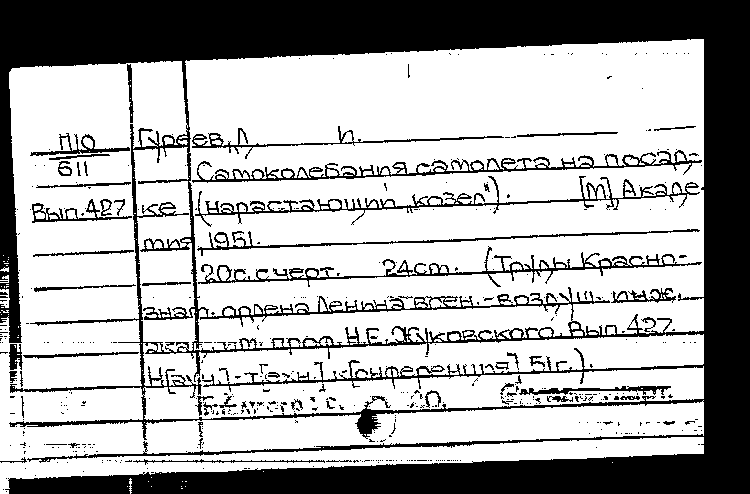 П10 Гуреев, Л. И.
611 Самоколебания самолета на посад-
Вып.427 ке (нарастающий „козел"). [М], Акаде-
мия, 1951.
20с. с черт. 24см. (Труды Красно-
знам. ордена Ленина воен.-воздуш. инж.
акад. им. проф. Н.Е. Жуковского. Вып.427.
Н[ауч.]-т[ехн.] к[онференция] 51г.).